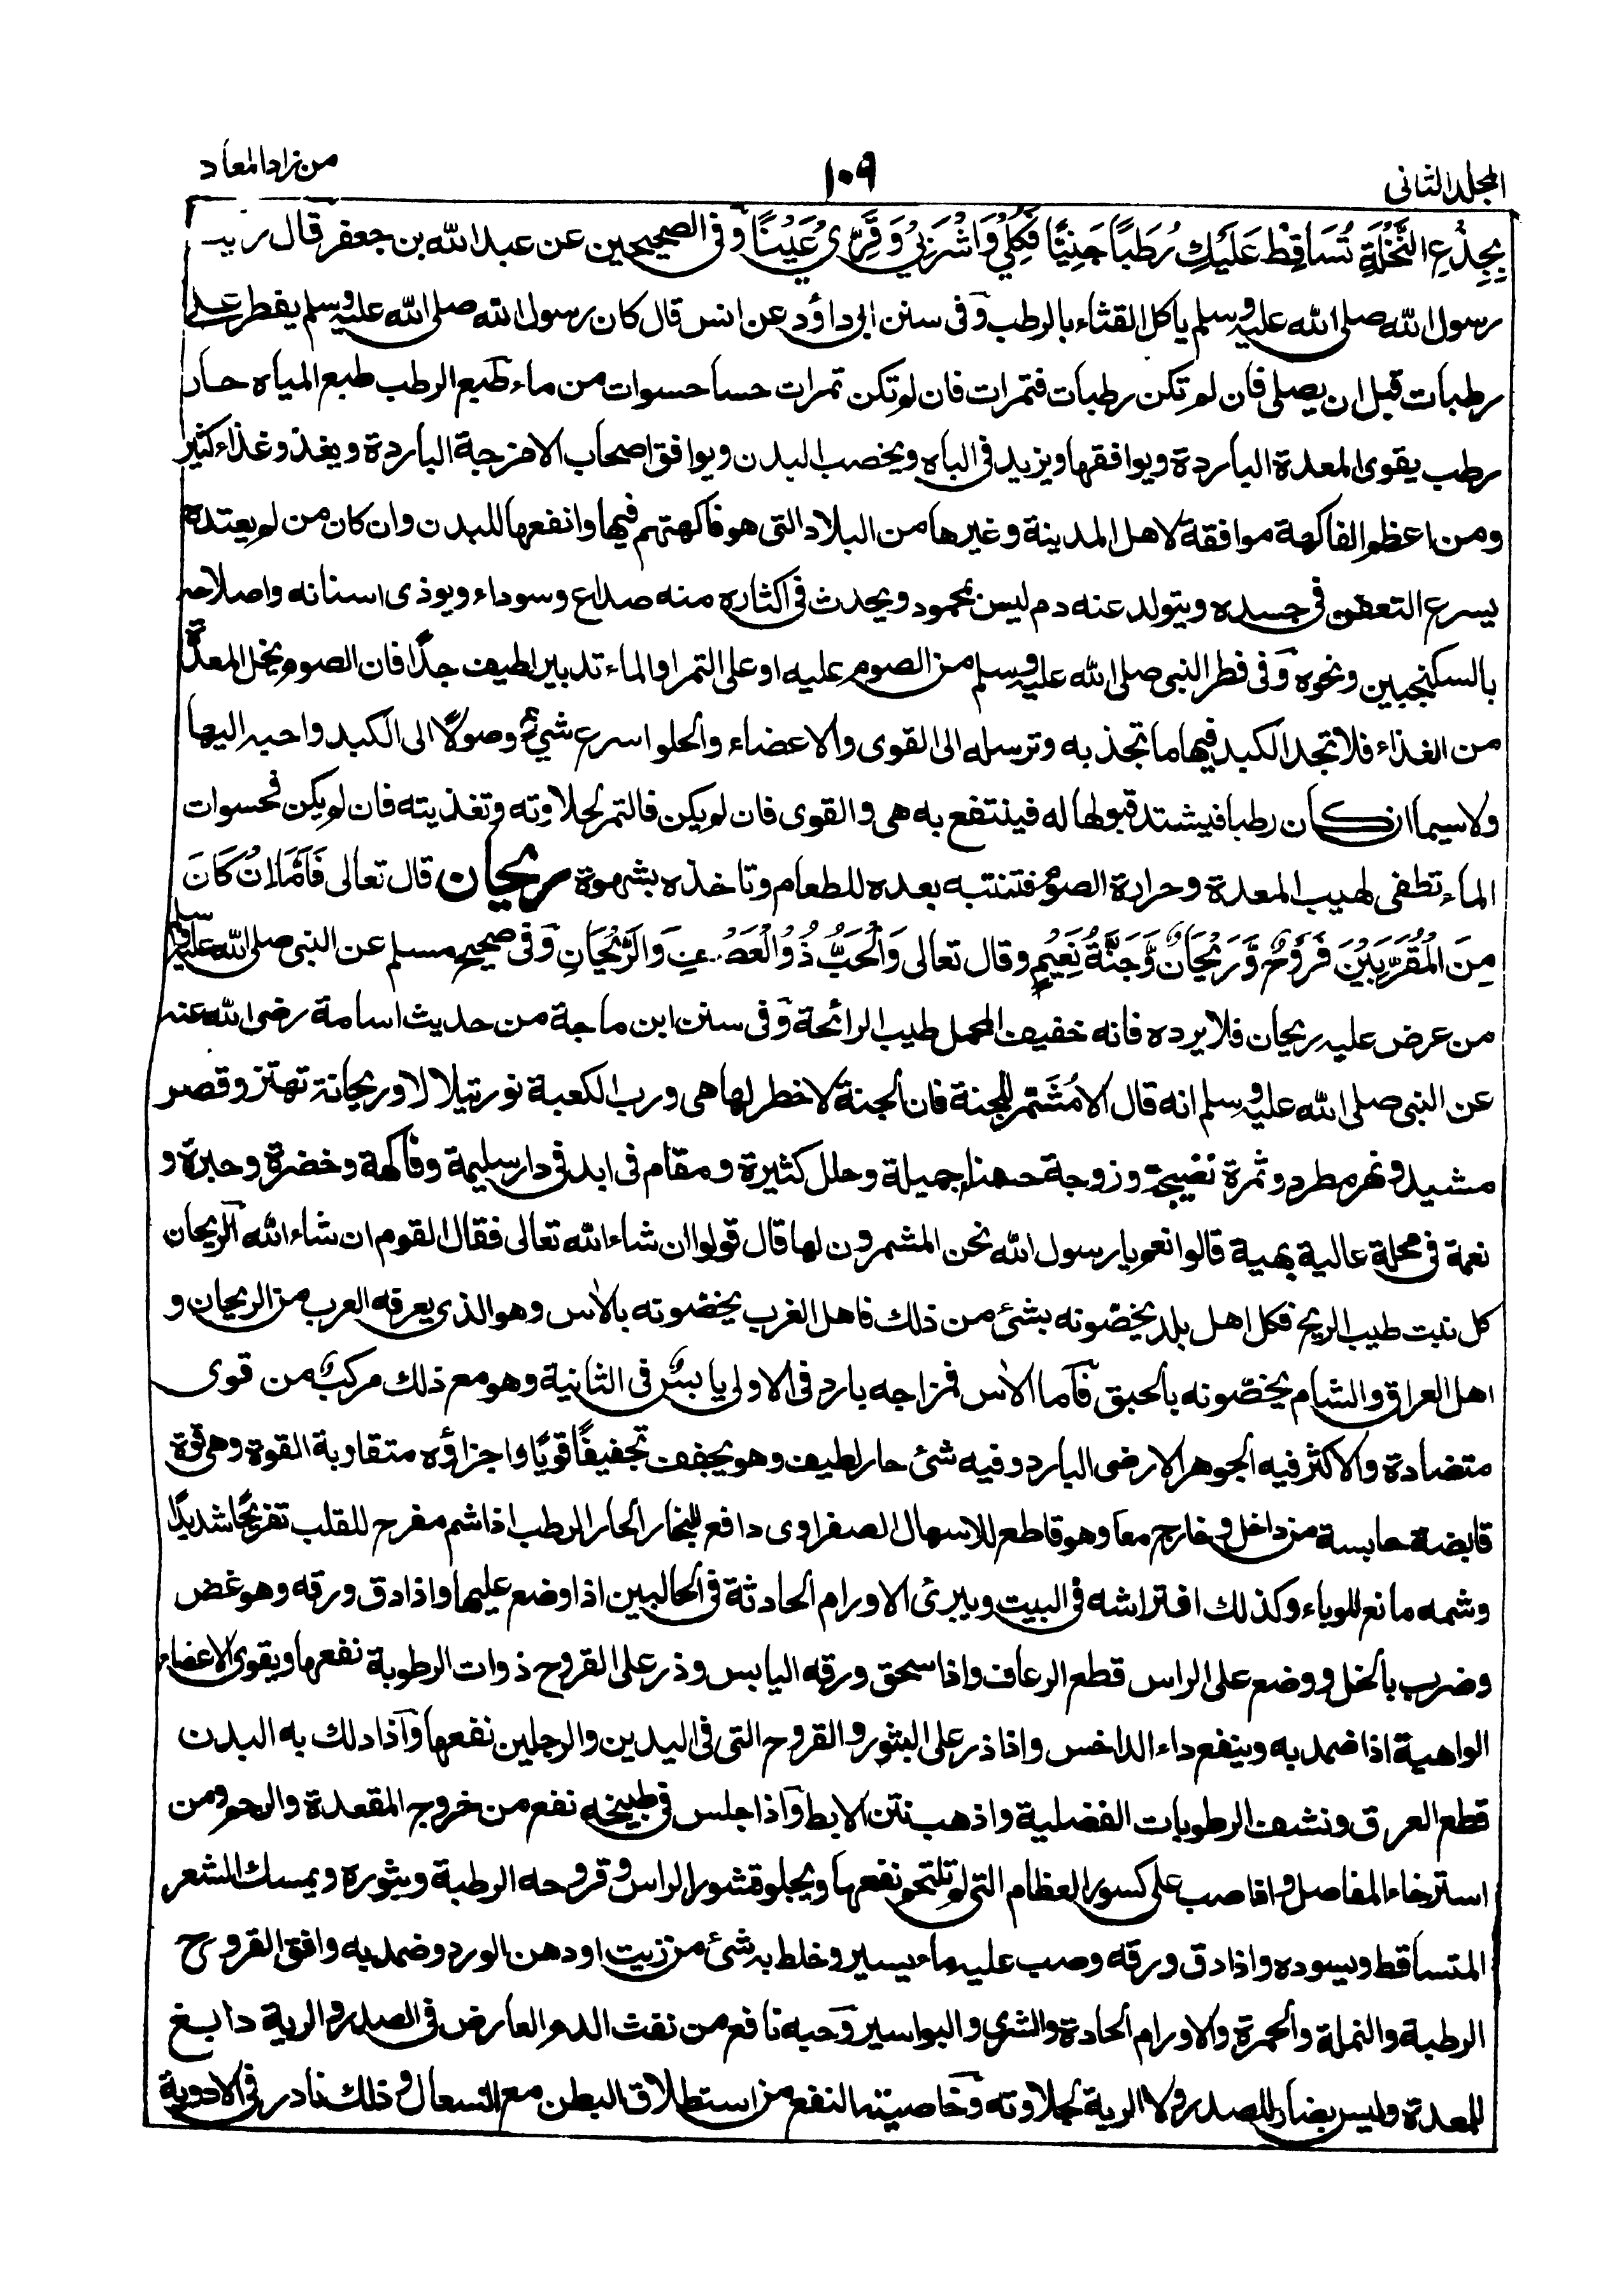 المجلد الثانى
١٠٩
من زاد المعاد
بِجِذْعِ النَّخْلَةِ تُسَاقِطْ عَلَيْكِ رُطَبًا جَنِيًّا فَكُلِيْ وَاشْرَبِيْ وَقَرِّيْ عَيْنًا وفى الصحيحين عن عبد الله بن جعفر قال رايت
رسول الله صلى الله عليه وسلم ياكل القثاء بالرطب وفى سنن ابى داؤد عن انس قال كان رسول الله صلى الله عليه وسلم يفطر على
رطبات قبل ان يصلى فان لم تكن رطبات فتمرات فان لم تكن تمرات حسا حسوات من ماء طبع الرطب طبع المياه حار
رطب يقوى المعدة الباردة ويوافقها ويزيد فى الباه ويخصب البدن ويوافق اصحاب الامزجة الباردة ويغذو غذاء كثير
ومن اعظم الفاكهة موافقة لاهل المدينة وغيرها من البلاد التى هو فاكهتهم فيها وانفعها للبدن وان كان من لم يعتده
يسرع التعفن فى جسده ويتولد عنه دم ليس بمحمود ويحدث فى اكثاره منه صداع وسوداء ويوذى اسنانه واصلاحه
بالسكنجبين ونحوه وفى فطر النبى صلى الله عليه وسلم من الصوم عليه او على التمر او الماء تدبير لطيف جدًّا فان الصوم يخل المعدة
من الغذاء فلا تجد الكبد فيها ما تجذبه وترسله الى القوى والاعضاء والحلو اسرع شئ وصولًا الى الكبد واحبه اليها
ولاسيما ان كان رطبا فيشتد قبولها له فينتفع به هى والقوى فان لم يكن فالتمر لحلاوته وتغذيته فان لم يكن فحسوات
الماء تطفى لهيب المعدة وحرارة الصوم فتنتبه بعده للطعام وتاخذه بشهوة ريحان قال تعالى فَاَمَّا اِنْ كَانَ
مِنَ الْمُقَرَّبِيْنَ فَرَوْحٌ وَّرَيْحَانٌ وَّجَنَّةُ نَعِيْمٍ وقال تعالى وَالْحَبُّ ذُوالْعَصْفِ وَالرَّيْحَانِ وفى صحيح مسلم عن النبى صلى الله عليه وسلم
من عرض عليه ريحان فلا يرده فانه خفيف المحمل طيب الرائحة وفى سنن ابن ماجة من حديث اسامة رضى الله عنه
عن النبى صلى الله عليه وسلم انه قال الا مُشَمّر للجنة فان الجنة لا خطر لها هى ورب الكعبة نور يتلالا وريحانة تهتز وقصر
مشيد ونهر مطرد وثمرة نضيجة وزوجة حسناء جميلة وحلل كثيرة ومقام فى ابد فى دار سليمة وفاكهة وخضرة وحبرة و
نعمة فى محلة عالية بهية قالوا نعم يا رسول الله نحن المشمرون لها قال قولوا ان شاء الله تعالى فقال القوم ان شاء الله الريحان
كل نبت طيب الريح فكل اهل بلد يخصّونه بشئ من ذلك فاهل الغرب يخصّونه بالاٰس وهو الذى يعرفه العرب من الريحان و
اهل العراق والشام يخصّونه بالحبق فاما الاٰس فمزاجه بارد فى الاولى يابسٌ فى الثانية وهو مع ذلك مركبٌ من قوى
متضادة والاكثر فيه الجوهر الارضى البارد وفيه شئ حار لطيف وهو يجفف تجفيفًا قويًا واجزاؤه متقاربة القوة وهى قوة
قابضة حابسة من داخل وخارج معا وهو قاطع للاسهال الصفراوى دافع للبخار الحار الرطب اذا شم مفرح للقلب تفريحًا شديدًا
وشمه مانع للوباء وكذلك افتراشه فى البيت ويبرئ الاورام الحادثة فى الحالبين اذا وضع عليها واذا دق ورقه وهو غض
وضرب بالخل ووضع على الراس قطع الرعاف واذا سحق ورقه اليابس وذر على القروح ذوات الرطوبة نفعها ويقوى الاعضاء
الواهية اذا ضمد به وينفع داء الداخس واذا ذر على البثور والقروح التى فى اليدين والرجلين نفعها واذا دلك به البدن
قطع العرق ونشف الرطوبات الفضلية واذهب نتن الابط واذا جلس فى طبيخه نفع من خروج المقعدة والرحم ومن
استرخاء المفاصل واذا صب على كسور العظام التى لم تلتحم نفعها ويجلو قشور الراس وقروحه الرطبة وبثوره ويمسك الشعر
المتساقط ويسوده واذا دق ورقه وصب عليه ماء يسير وخلط به شئ من زيت او دهن الورد وضمد به وافق القروح
الرطبة والنملة والحمرة والاورام الحادة والشرى والبواسير وحبه نافع من نفث الدم العارض فى الصدر والرية دابغ
للمعدة وليس بضار للصدر ولا الرية لجلاوته وخاصيته النفع من استطلاق البطن مع السعال وذلك نادر فى الادوية